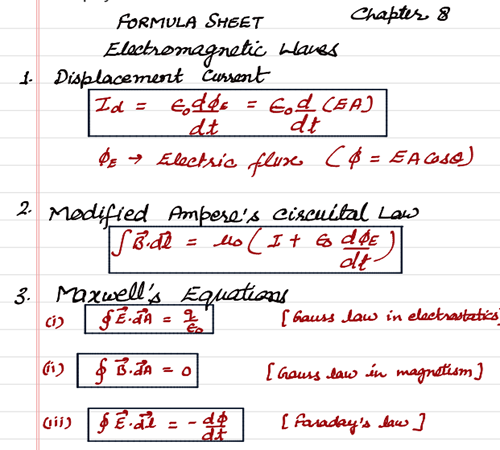 FORMULA SHEET Chapter 8
Electromagnetic Waves
1. Displacement Current
Id = ε₀dϕE/dt = ε₀ d/dt (EA)
ϕE → Electric flux (ϕ = EA cosθ)
2. Modified Ampere's Circuital Law
∫B⃗.d⃗l = μ₀(I + ε₀ dϕE/dt)
3. Maxwell's Equations
(i) ∮E⃗.d⃗A = q/ε₀ [Gauss law in electrostatics]
(ii) ∮B⃗.d⃗A = 0 [Gauss law in magnetism]
(iii) ∮E⃗.d⃗l = -dϕ/dt [Faraday's law]